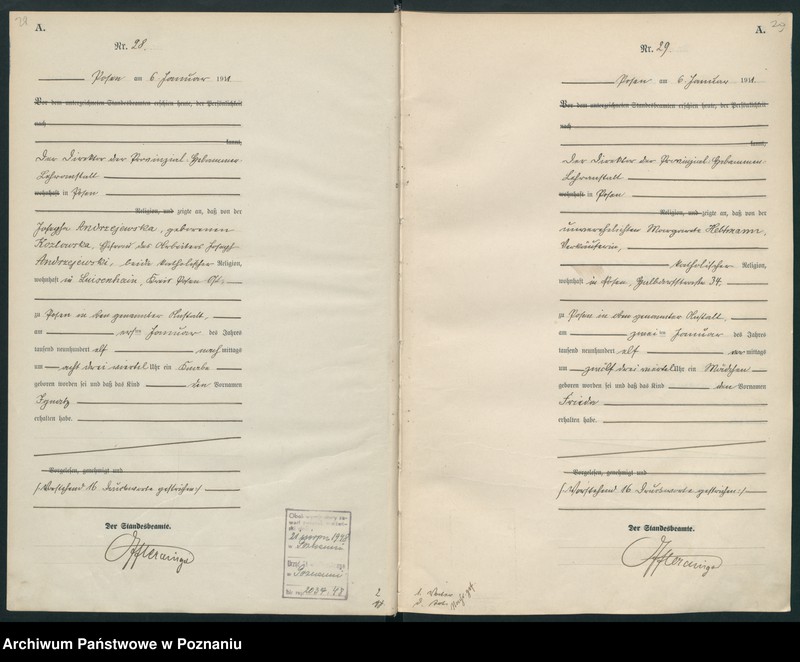 28
A.
Nr. 28.
Posen am 6. Januar 1911
Vor dem unterzeichneten Standesbeamten erschien heute, der Persönlichkeit
nach
kannt,
Der Direktor der Provinzial-Hebammen-
Lehranstalt
wohnhaft in Posen
Religion, und zeigte an, daß von der
Josepha Andrzejewska, geborenen
Kozlowska, Ehefrau des Arbeiters Joseph
Andrzejewski, beide katholischer Religion,
wohnhaft in Luisenhain, Kreis Posen Ost
zu Posen in der genannten Anstalt,
am ersten Januar des Jahres
tausend neunhundert elf nachmittags
um acht dreiviertel Uhr ein Knabe
geboren worden sei und daß das Kind den Vornamen
Ignatz
erhalten habe.
Vorgelesen, genehmigt und
/:Vorstehend 16 Druckworte gestrichen:/
Der Standesbeamte.
2024
29
A.
Nr. 29
Posen am 6. Januar 1911
Vor dem unterzeichneten Standesbeamten erschien heute, der Persönlichkeit
nach
kannt,
Der Direktor der Provinzial-Hebammen-
Lehranstalt
wohnhaft in Posen
Religion, und zeigte an, daß von der
unverehelichten Margarete
Verkäuferin,
katholischer Religion,
wohnhaft in Posen, 34.
zu Posen in der genannten Anstalt,
am zweiten Januar des Jahres
tausend neunhundert elf vormittags
um zwölf dreiviertel Uhr ein Mädchen
geboren worden sei und daß das Kind den Vornamen
Frieda
erhalten habe.
Vorgelesen, genehmigt und
/:Vorstehend 16 Druckworte gestrichen:/
Der Standesbeamte.
Archiwum Państwowe w Poznaniu